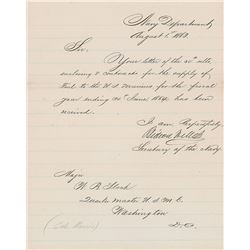 Navy Department,
August 1, 1863.
Sir,
Your letter of the 30th ulto.
enclosing 2 contracts for the supply of
Fuel to the U.S. Marines for the fiscal
year ending 30th June, 1864, has been
received.
I am Respectfully
Gideon Welles
Secretary of the Navy.
Major
W. B. Slack
Quarter master U.S.M.C.
Washington
D.C.